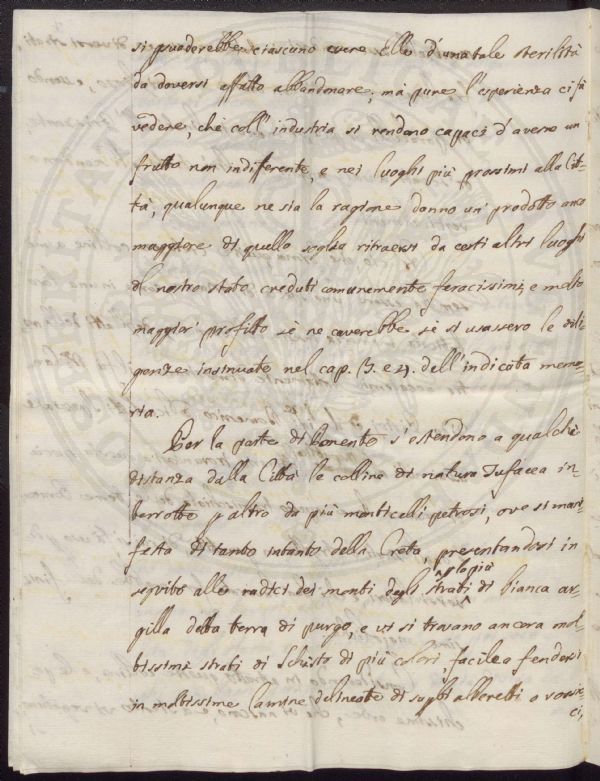 si suaderebbe ciascuno essere Elle d'una tale sterilità
da doversi affatto abbandonare; mà pure l'esperienza ci fà
vedere, che coll'industria si rendono capaci d'avere un
frutto non indiferente, e nei luoghi più prossimi alla Cit-
tà, qualunque ne sia la ragione danno un prodotto anco
maggiore di quello soglia ritraersi da certi altri luoghi
di nostro stato creduti comunemente feracissimi, e molto
maggior profitto sè ne caverebbe sè si usassero le dili-
genze insinuate nel cap. 3. e 4. dell'indicata memo-
ria.
Per la parte di Ponente si estendono a qualche
distanza dalla Città le colline di natura Tufacea in-
terrotte p altro da più monticelli petrosi, ove si mani-
festa di tanto intanto della Creta, presentandosi in
seguito alle radici dei monti degli strati di bianca ar-
gilla detta terra di purgo, e vi si trovano ancora mol-
tissimi strati di Schisto di più colori, facile a fendersi
in moltissime Lamine delineate di sugli alberetti o
ci,